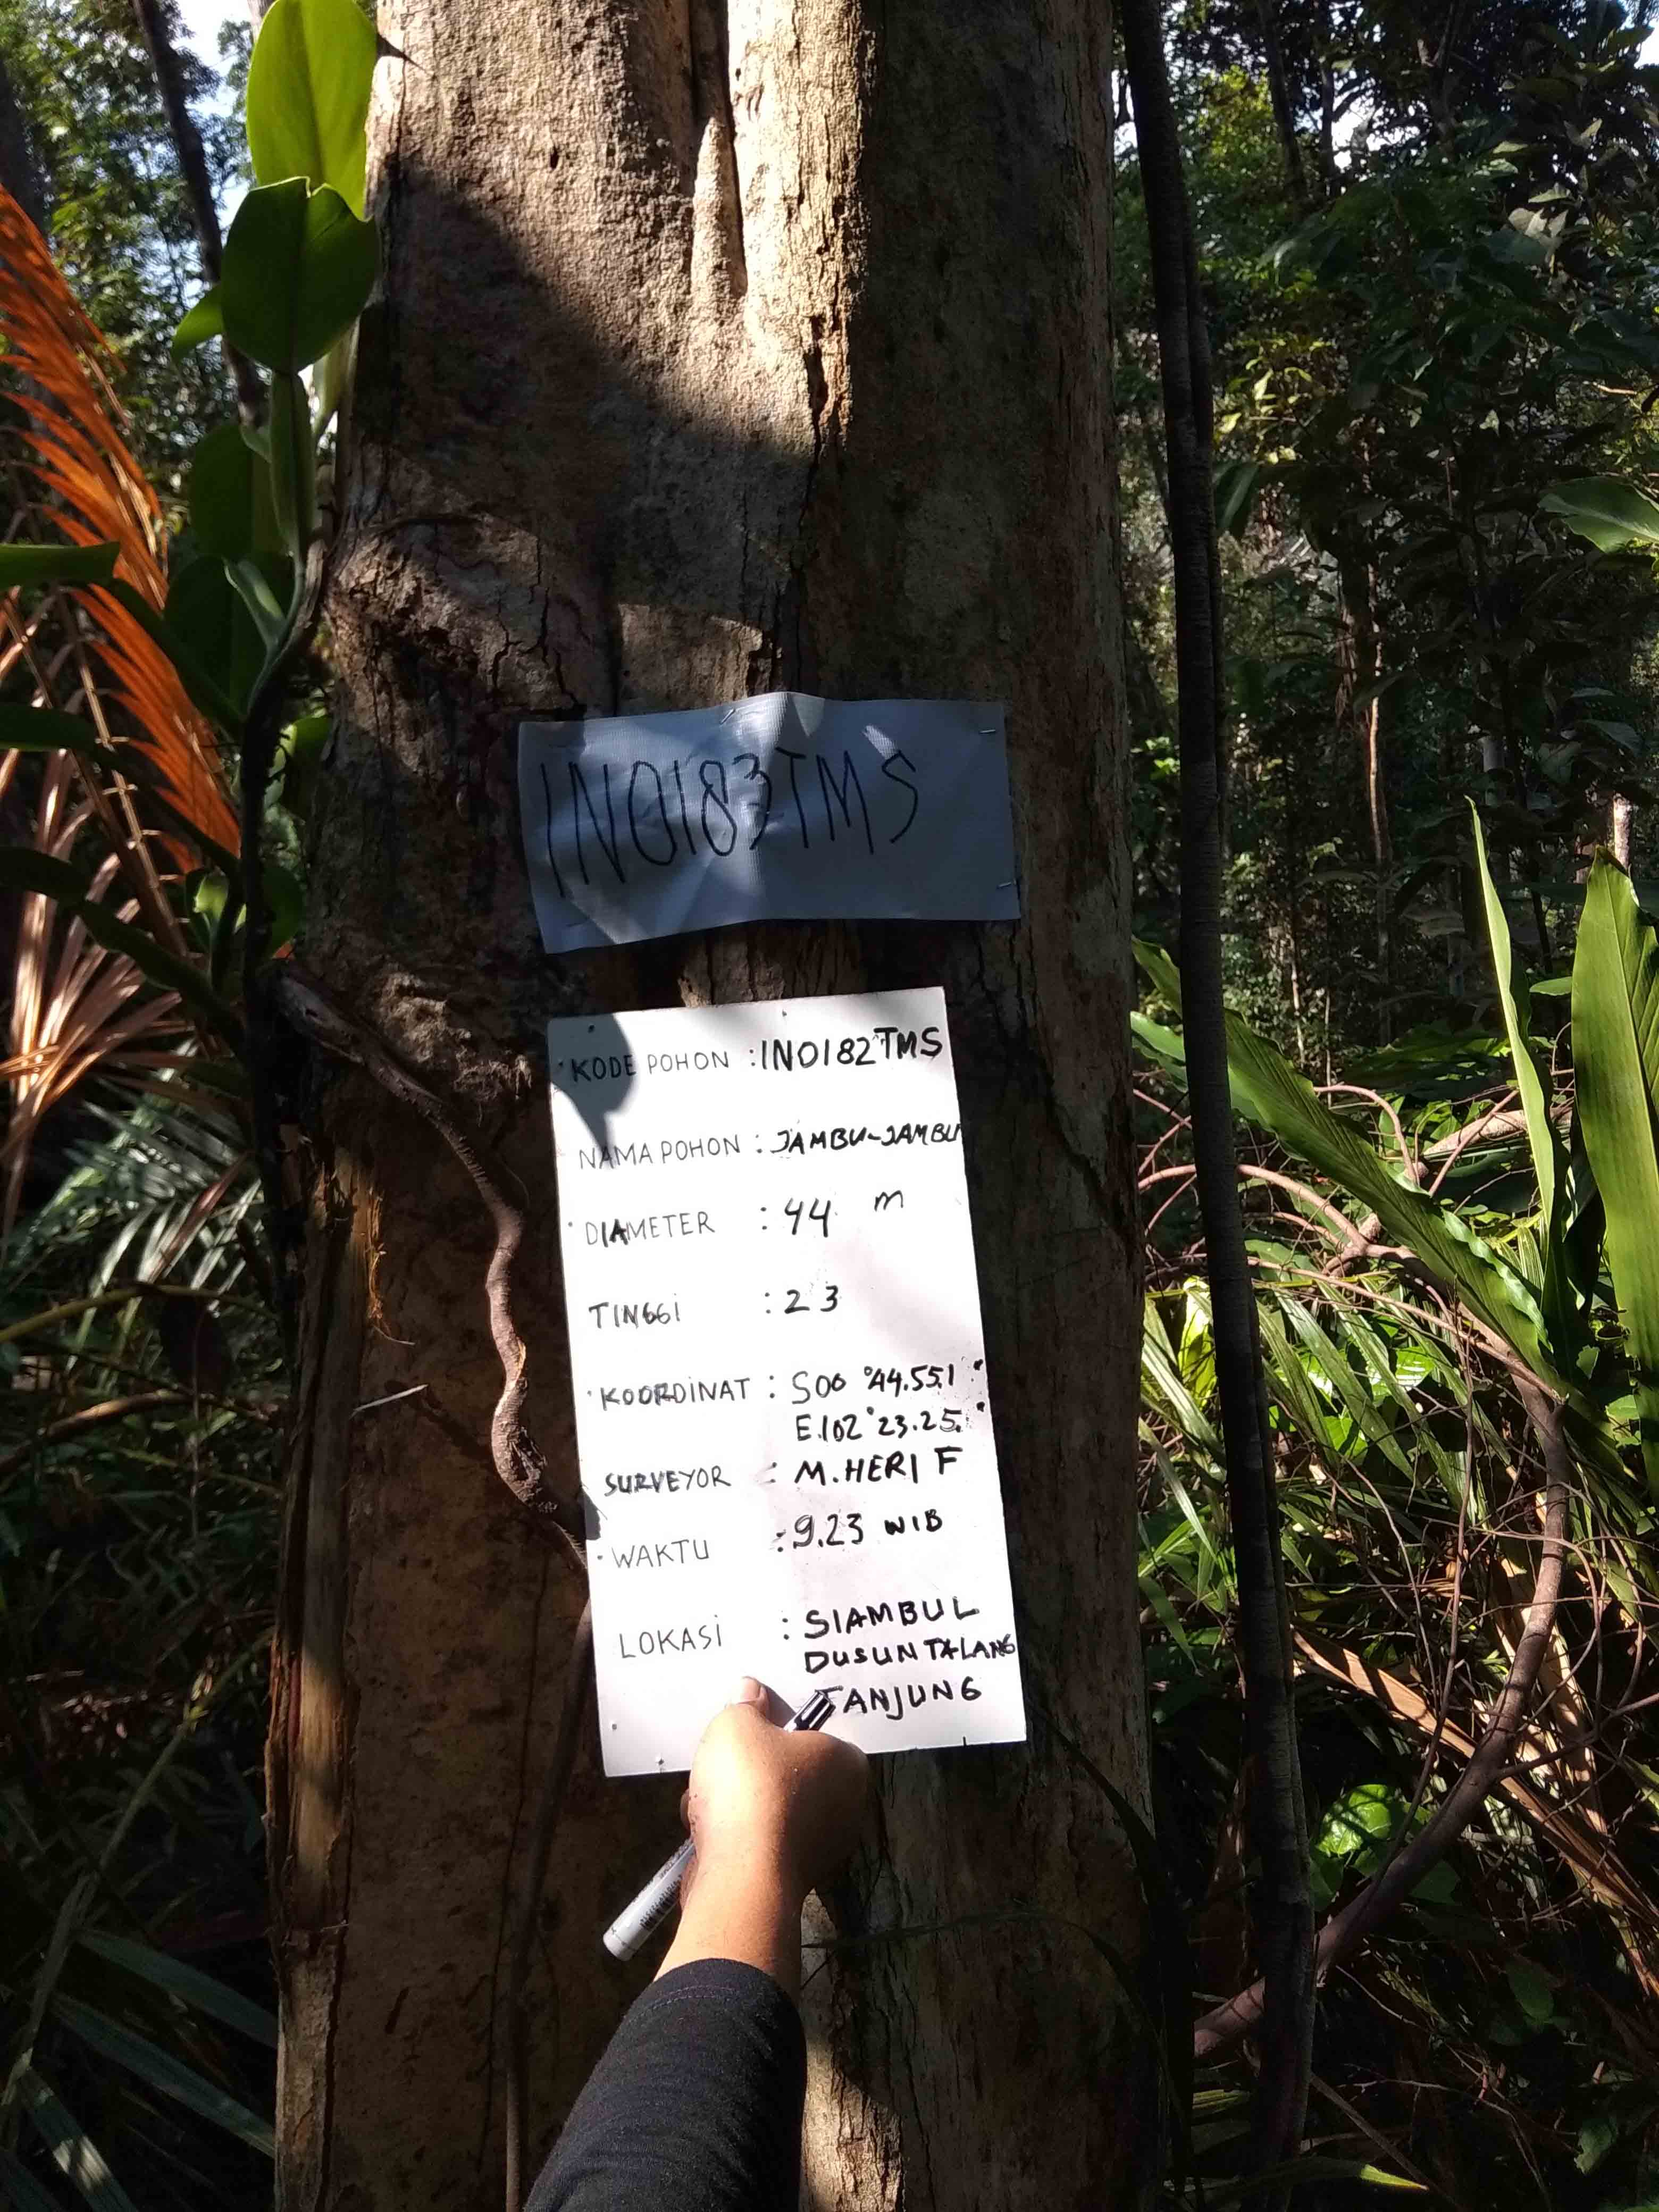 INO183TMS
KODE POHON : INO182TMS
NAMA POHON : JAMBU-JAMBU
DIAMETER : 44 m
TINGGI : 23
KOORDINAT : S00°44.551'
E.102°23.25.'
SURVEYOR : M.HERI F
WAKTU : 9.23 WIB
LOKASI : SIAMBUL
DUSUN TALANG
TANJUNG